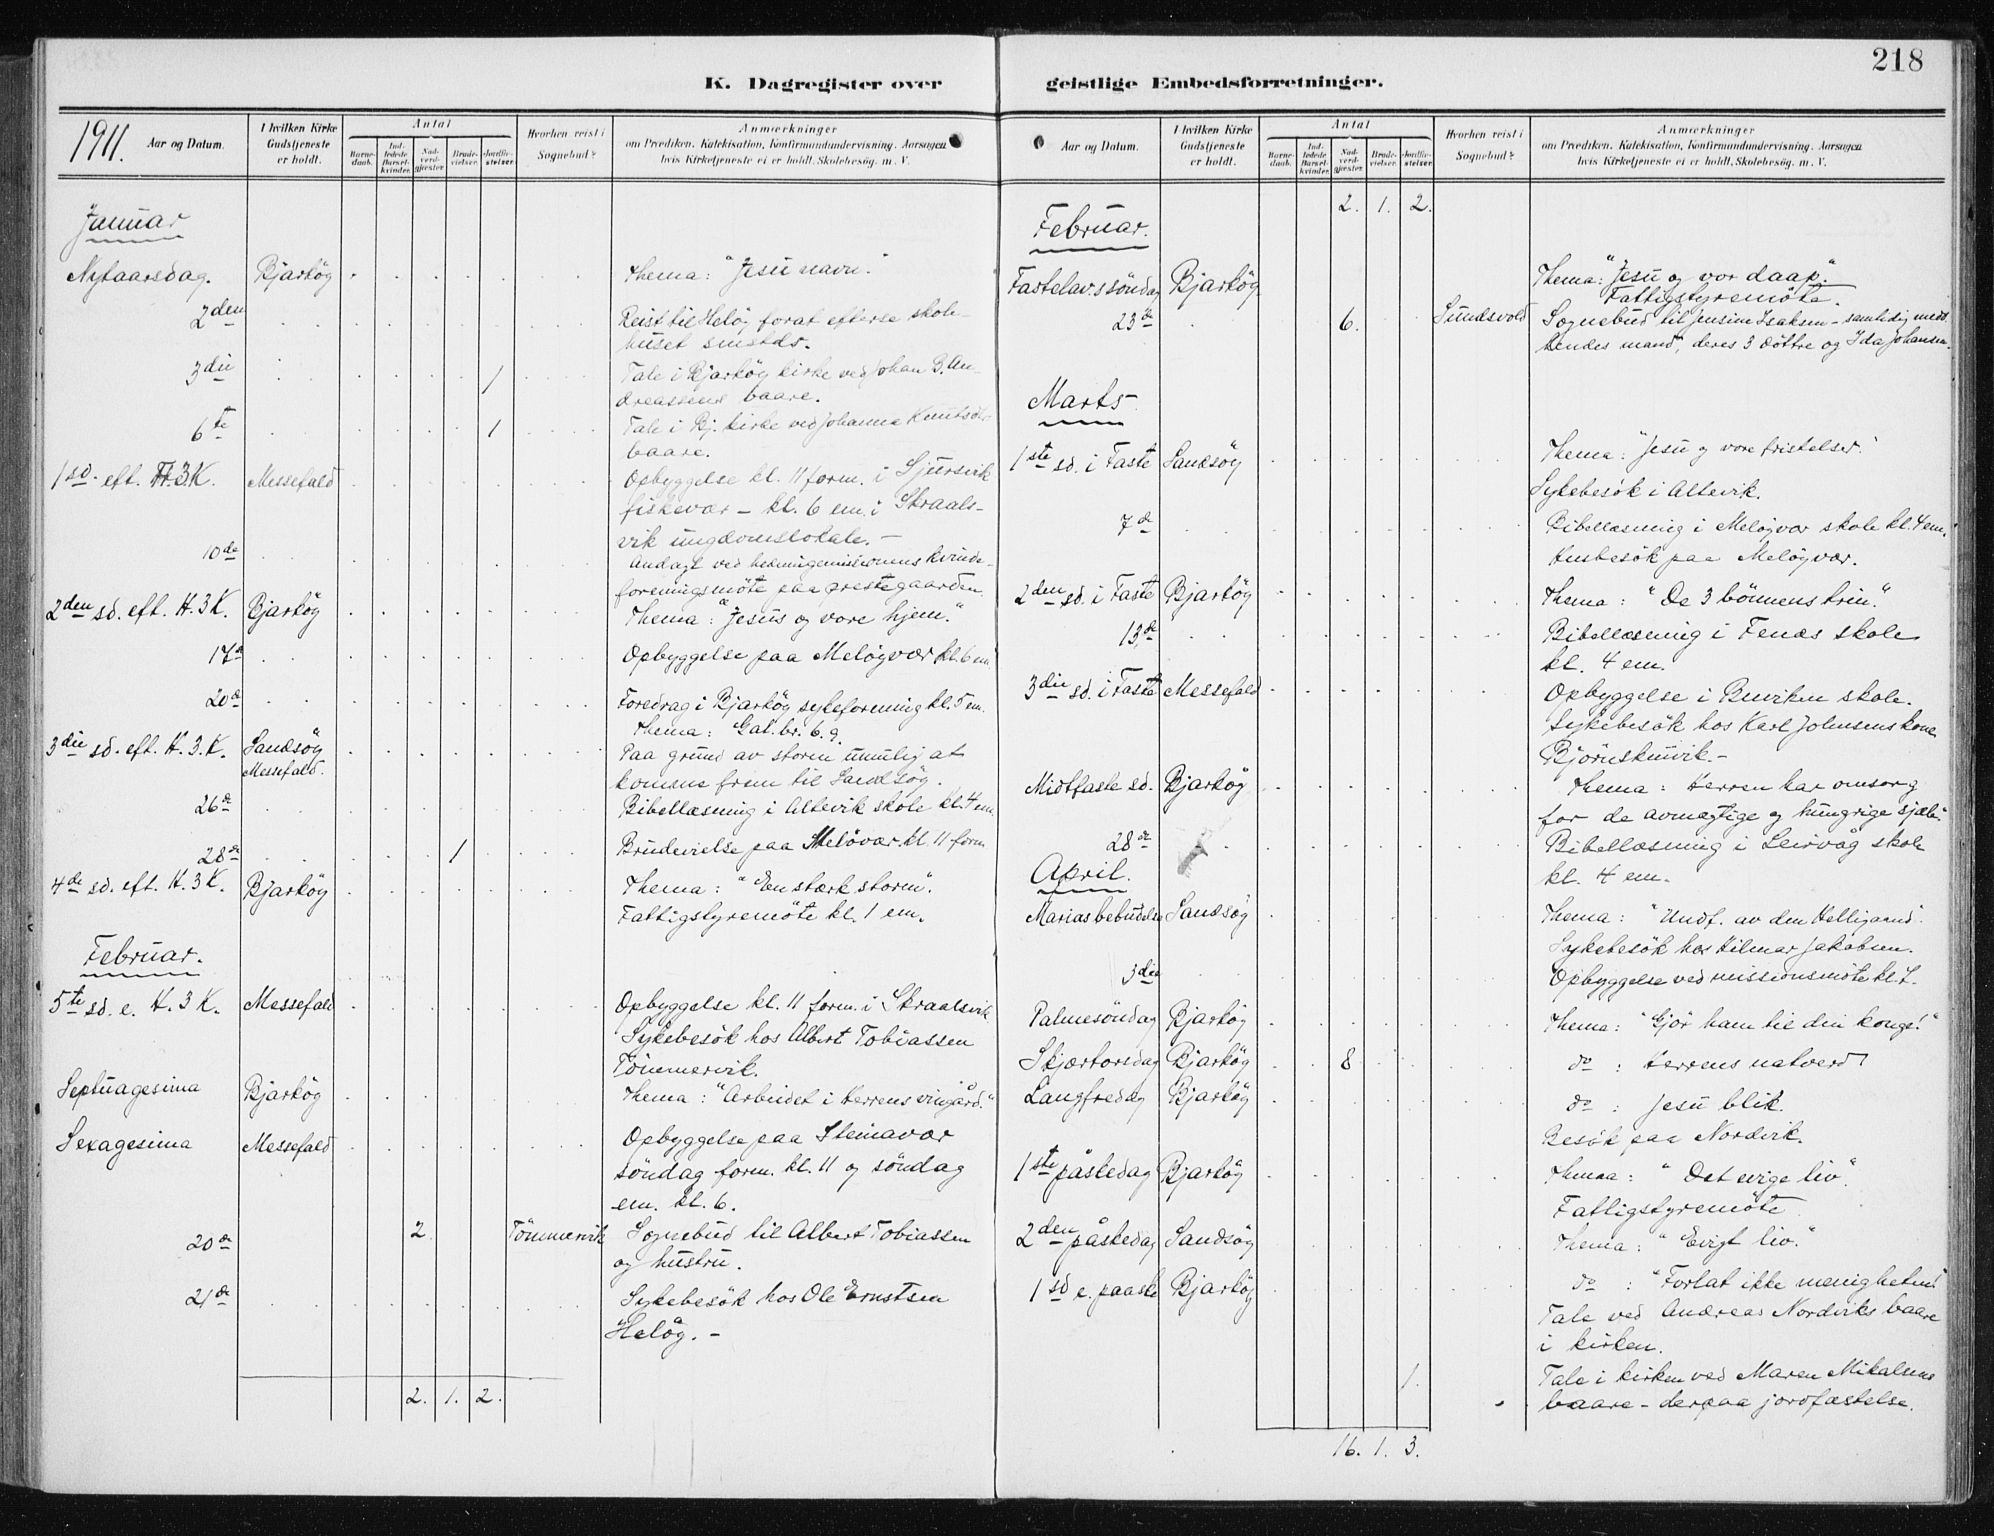 218
K. Dagregister over
geistlige Embedsforretninger.
1911.
Aar og Datum.
I hvilken Kirke
Gudstjeneste
er holdt.
Antal
Barne-
daab.
Ind-
ledede
Barsel-
kvinder.
Nad-
verd-
gjæster.
Brude-
vielser.
Jordfæ-
stelser.
Hvorhen reist i
Sognebud?
Anmærkninger
om Prædiken, Katekisation, Konfirmandundervisning, Aarsagen
hvis Kirketjeneste ei er holdt, Skolebesøg, m. V.
Januar
Nytaarsdag. Bjarköy Thema: "Jesu navn."
2den Reist til Helöy forat efterse skole-
huset smstds.
3die 1 Tale i Bjarköy kirke ved Johan B. An-
dreassens baare.
6te 1 Tale i Bj. kirke ved Johanna Knutsdtr
baare.
1 sd. eft. H.3.K. Messefald Opbyggelse kl. 11 form. i Sjursvik
fiskevær – kl. 6 em. i Straals-
vik ungdomslokale. –
10de Andagt ved hedningemissionens kvinde-
foreningsmöte paa prestegaarden.
2den sd. eft. H.3K. Bjarköy Thema: "Jesus og vore hjem."
17de Opbyggelse paa Meløyvær kl. 6 em.
20de Foredrag i Bjarköy sykeforening kl. 5 em.
Thema: Gal. br. 6. 9.
3die sd. eft. H.3.K. Sandsöy Paa grund av storm umulig at
Messefald. komme frem til Sandsöy.
26de Bibellæsning i Altevik skole kl. 4 em.
28de 1 Brudevielse paa Meløvær kl. 11 form
4de sd. eft. H.3K. Bjarköy Thema: "En stærk storm".
Fattigstyremöte kl. 1 em.
Februar.
5te sd. e. H.3K. Messefald Opbyggelse kl. 11 form. i Straalsvik
Sykebesök hos Albert Tobiassen
Tömmervik.
Septuagesima Bjarköy Thema: "Arbeidet i Herrens vingård."
Sexagesima Messefald Opbyggelse paa Steinavær
söndag form. kl. 11 og söndag
em. kl. 6.
20de 2 Tömmervik Sognebud til Albert Tobiassen
og hustru.
21de Sykebesök hos Ole Ernstsen
Helöy. –
2. 1. 2.
Aar og Datum.
I hvilken Kirke
Gudstjeneste
er holdt.
Antal
Barne-
daab.
Ind-
ledede
Barsel-
kvinder.
Nad-
verd-
gjæster.
Brude-
vielser.
Jordfæ-
stelser.
Hvorhen reist i
Sognebud?
Anmærkninger
om Prædiken, Katekisation, Konfirmandundervisning, Aarsagen
hvis Kirketjeneste ei er holdt, Skolebesøg, m. V.
2. 1. 2.
Februar.
Fastelavnssöndag Bjarköy Thema: "Jesu og vor daap."
Fattigstyremöte.
23de 6. Sundsvold Sognebud til Jensine Isaksen – samtidig med
hendes mand, deres 3 döttre og Ida Johansen.
Marts
1ste sd. i Faste Sandsöy Thema: "Jesu og vore fristelser."
Sykebesök i Altevik.
7de Bibellæsning i Meløyvær skole kl. 4 em.
Husbesök paa Meløyvær.
2den sd. i Faste Bjarköy Thema: "De 3 bönnens trin."
13de Bibellæsning i Fenes skole
kl. 4 em.
3die sd. i Faste Messefald Opbyggelse i skole.
Sykebesök hos Karl Johnsens kone
–
Midtfaste sd. Bjarköy Thema: Herren har omsorg
for de avmægtige og hungrige sjæle."
28de Bibellæsning i Leirvåg skole
kl. 4 em.
April.
Marias bebudelse Sandsöy Thema: "Undf. av den Helligaand."
Sykebesök hos Hilmar Jakobsen.
3die Opbyggelse ved missionsmöte kl.
Palmesöndag Bjarköy Thema: "Gjör ham til din konge!"
Skjærtorsdag Bjarköy 8 do : Herrens natverd
Langfredag Bjarköy do : Jesu blik.
Besök paa Nordvik.
1ste påskedag Bjarköy Thema: "Det evige liv".
Fattigstyremöte
2den påskedag Sandsöy Thema: "Evigt liv."
1 sd e. paaske Bjarköy do : "Forlat ikke menigheten!
Tale ved Andreas Nordviks baare
i kirken.
1. Tale i kirken ved Maren Mikalsens
baare – derpaa jordfæstelse.
16. 1. 3.